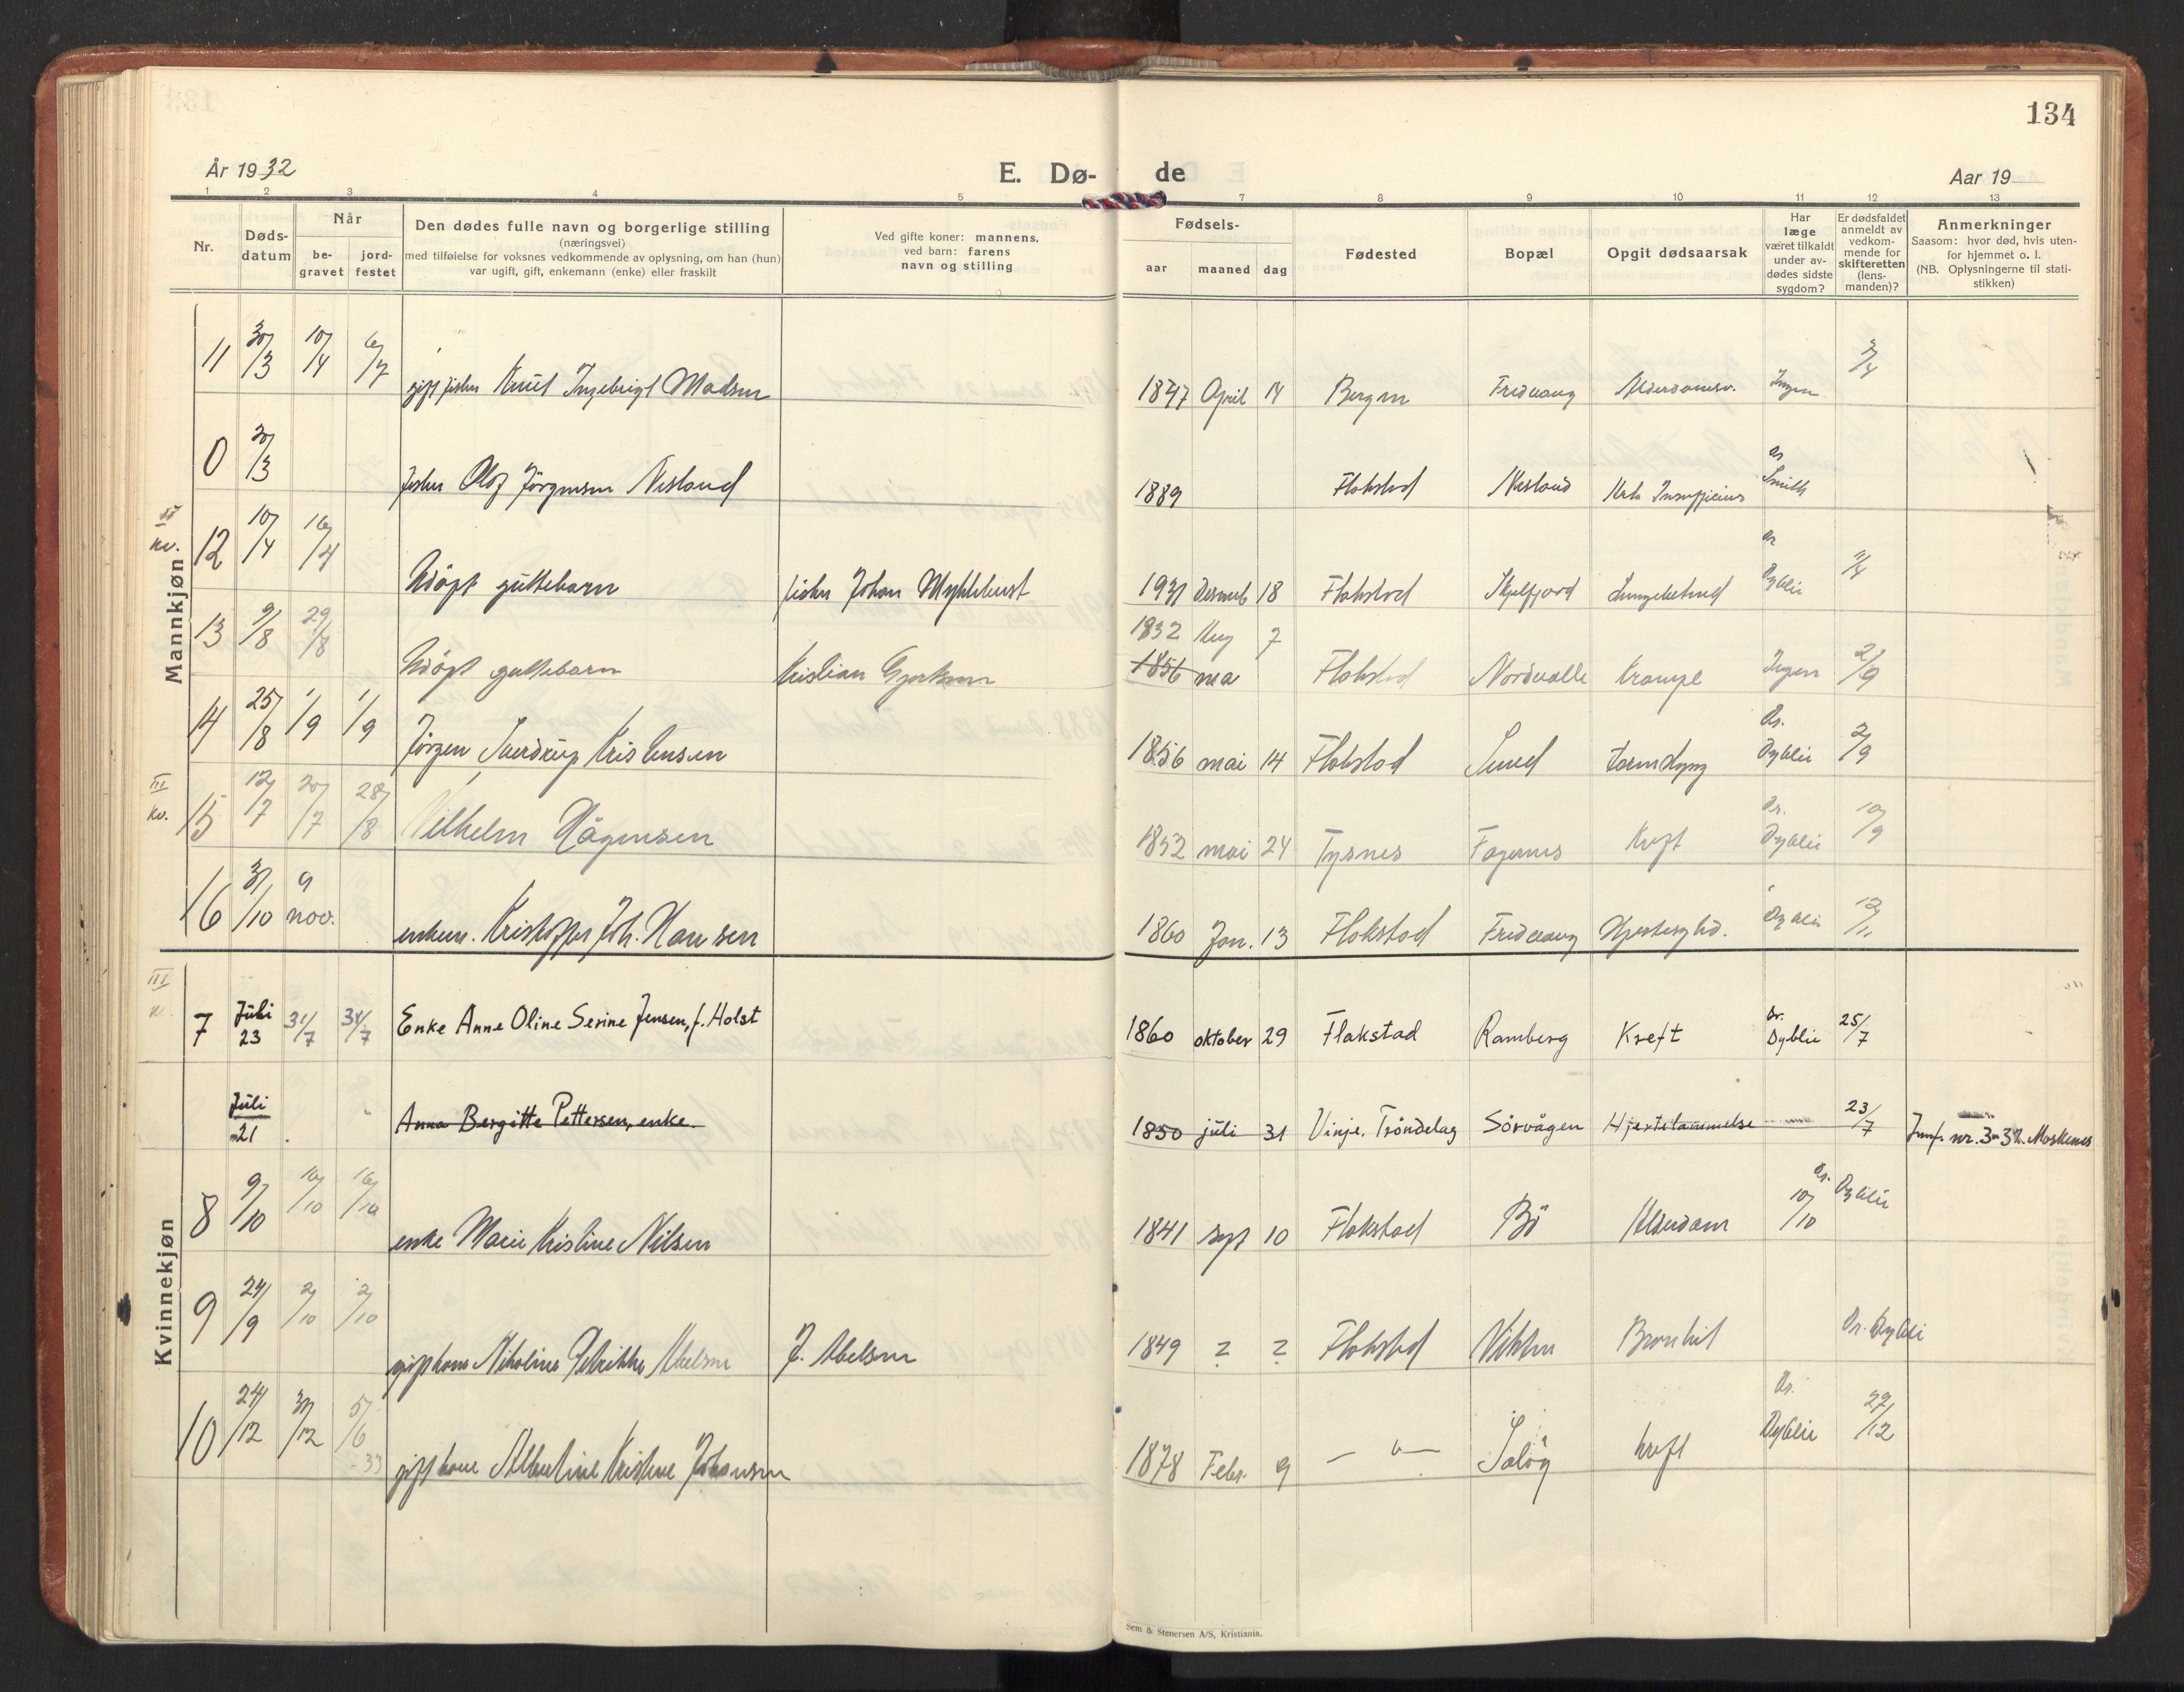 134
År 1932
E. Dø-
de
Aar 19
1 2 3 4 5 7 8 9 10 11 12 13
Nr.
Døds-
datum
Når
be-
gravet
jord-
festet
Den dødes fulle navn og borgerlige stilling
(næringsvei)
med tilføielse for voksnes vedkommende av oplysning, om han (hun)
var ugift, gift, enkemann (enke) eller fraskilt
Ved gifte koner: mannens,
ved barn: farens
navn og stilling
Fødsels-
aar maaned dag
Fødested
Bopæl
Opgit dødsaarsak
Har
læge
været tilkaldt
under av-
dødes sidste
sygdom?
Er dødsfaldet
anmeldt av
vedkom-
mende for
skifteretten
(lens-
manden)?
Anmerkninger
Saasom: hvor død, hvis uten-
for hjemmet o. l.
(NB. Oplysningerne til stati-
stikken)
Mannkjøn
11 30/3 10/4 gift fisker Knut Ingebrigt Madsen 1847 April 14 Bergen Fredvang Alderdomssv. Ingen 2/4
0 20/3 fisker Olaf Jörgensen Nesland 1889 Flakstad Nesland dr Smith
II kv.
12 10/4 16/4 Udöpt guttebarn fisker Johan Myklebust 1931 Desemb 18 Flakstad Skjelfjord Lungebetend dr Dyblie
13 9/8 29/8 Udöpt guttebarn Kristian 1932 Aug 7 1856 ma Flakstad Nordvalle Krampe Ingen 2/9
14 25/8 1/9 1/9 Jörgen Sverdrup Kristensen 1856 mai 14 Flakstad Sund tarmslyng Dr. Dyblie 2/9
III kv.
15 12/7 20/7 28/8 Vilhelm Hågensen 1852 mai 24 Tysnes Fagernes Kreft Dr. Dyblie 10/9
16 31/10 9 nov. enkem. Kristoffer Joh. Hansen 1860 Jan. 13 Flakstad Fredvang Hjertesykd. Dyblie 12/11
Kvinnekjøn
III
7 Juli 23 31/7 31/7 Enke Anne Oline Serine Jensen, f. Holst 1860 oktober 29 Flakstad Ramberg Kreft Dr. Dyblie 25/7
Juli 21 Anna Bergitte Pettersen, enke. 1850 juli 31 Vinje. Tröndelag Sörvågen Hjertelammelse 23/7 Jmf. nr. 3-32. Moskenes
8 9/10 16/10 16/10 enke Marie Kristine Nilsen 1841 sept 10 Flakstad Bö Alderdom Dr. Dyblie 10/10
9 24/9 2/10 2/10 gift kone Nikoline Petrikke Abelsen J. Abelsen 1849 ? ? Flakstad Vikten Bronkit Dr. Dyblie
10 24/12 31/12 5/6 -33 gift kone Albertine Kristine Johansen 1878 Febr. 9 — " — kreft Dr. Dyblie 27/12
Sem & Stenersen A/S, Kristiania.